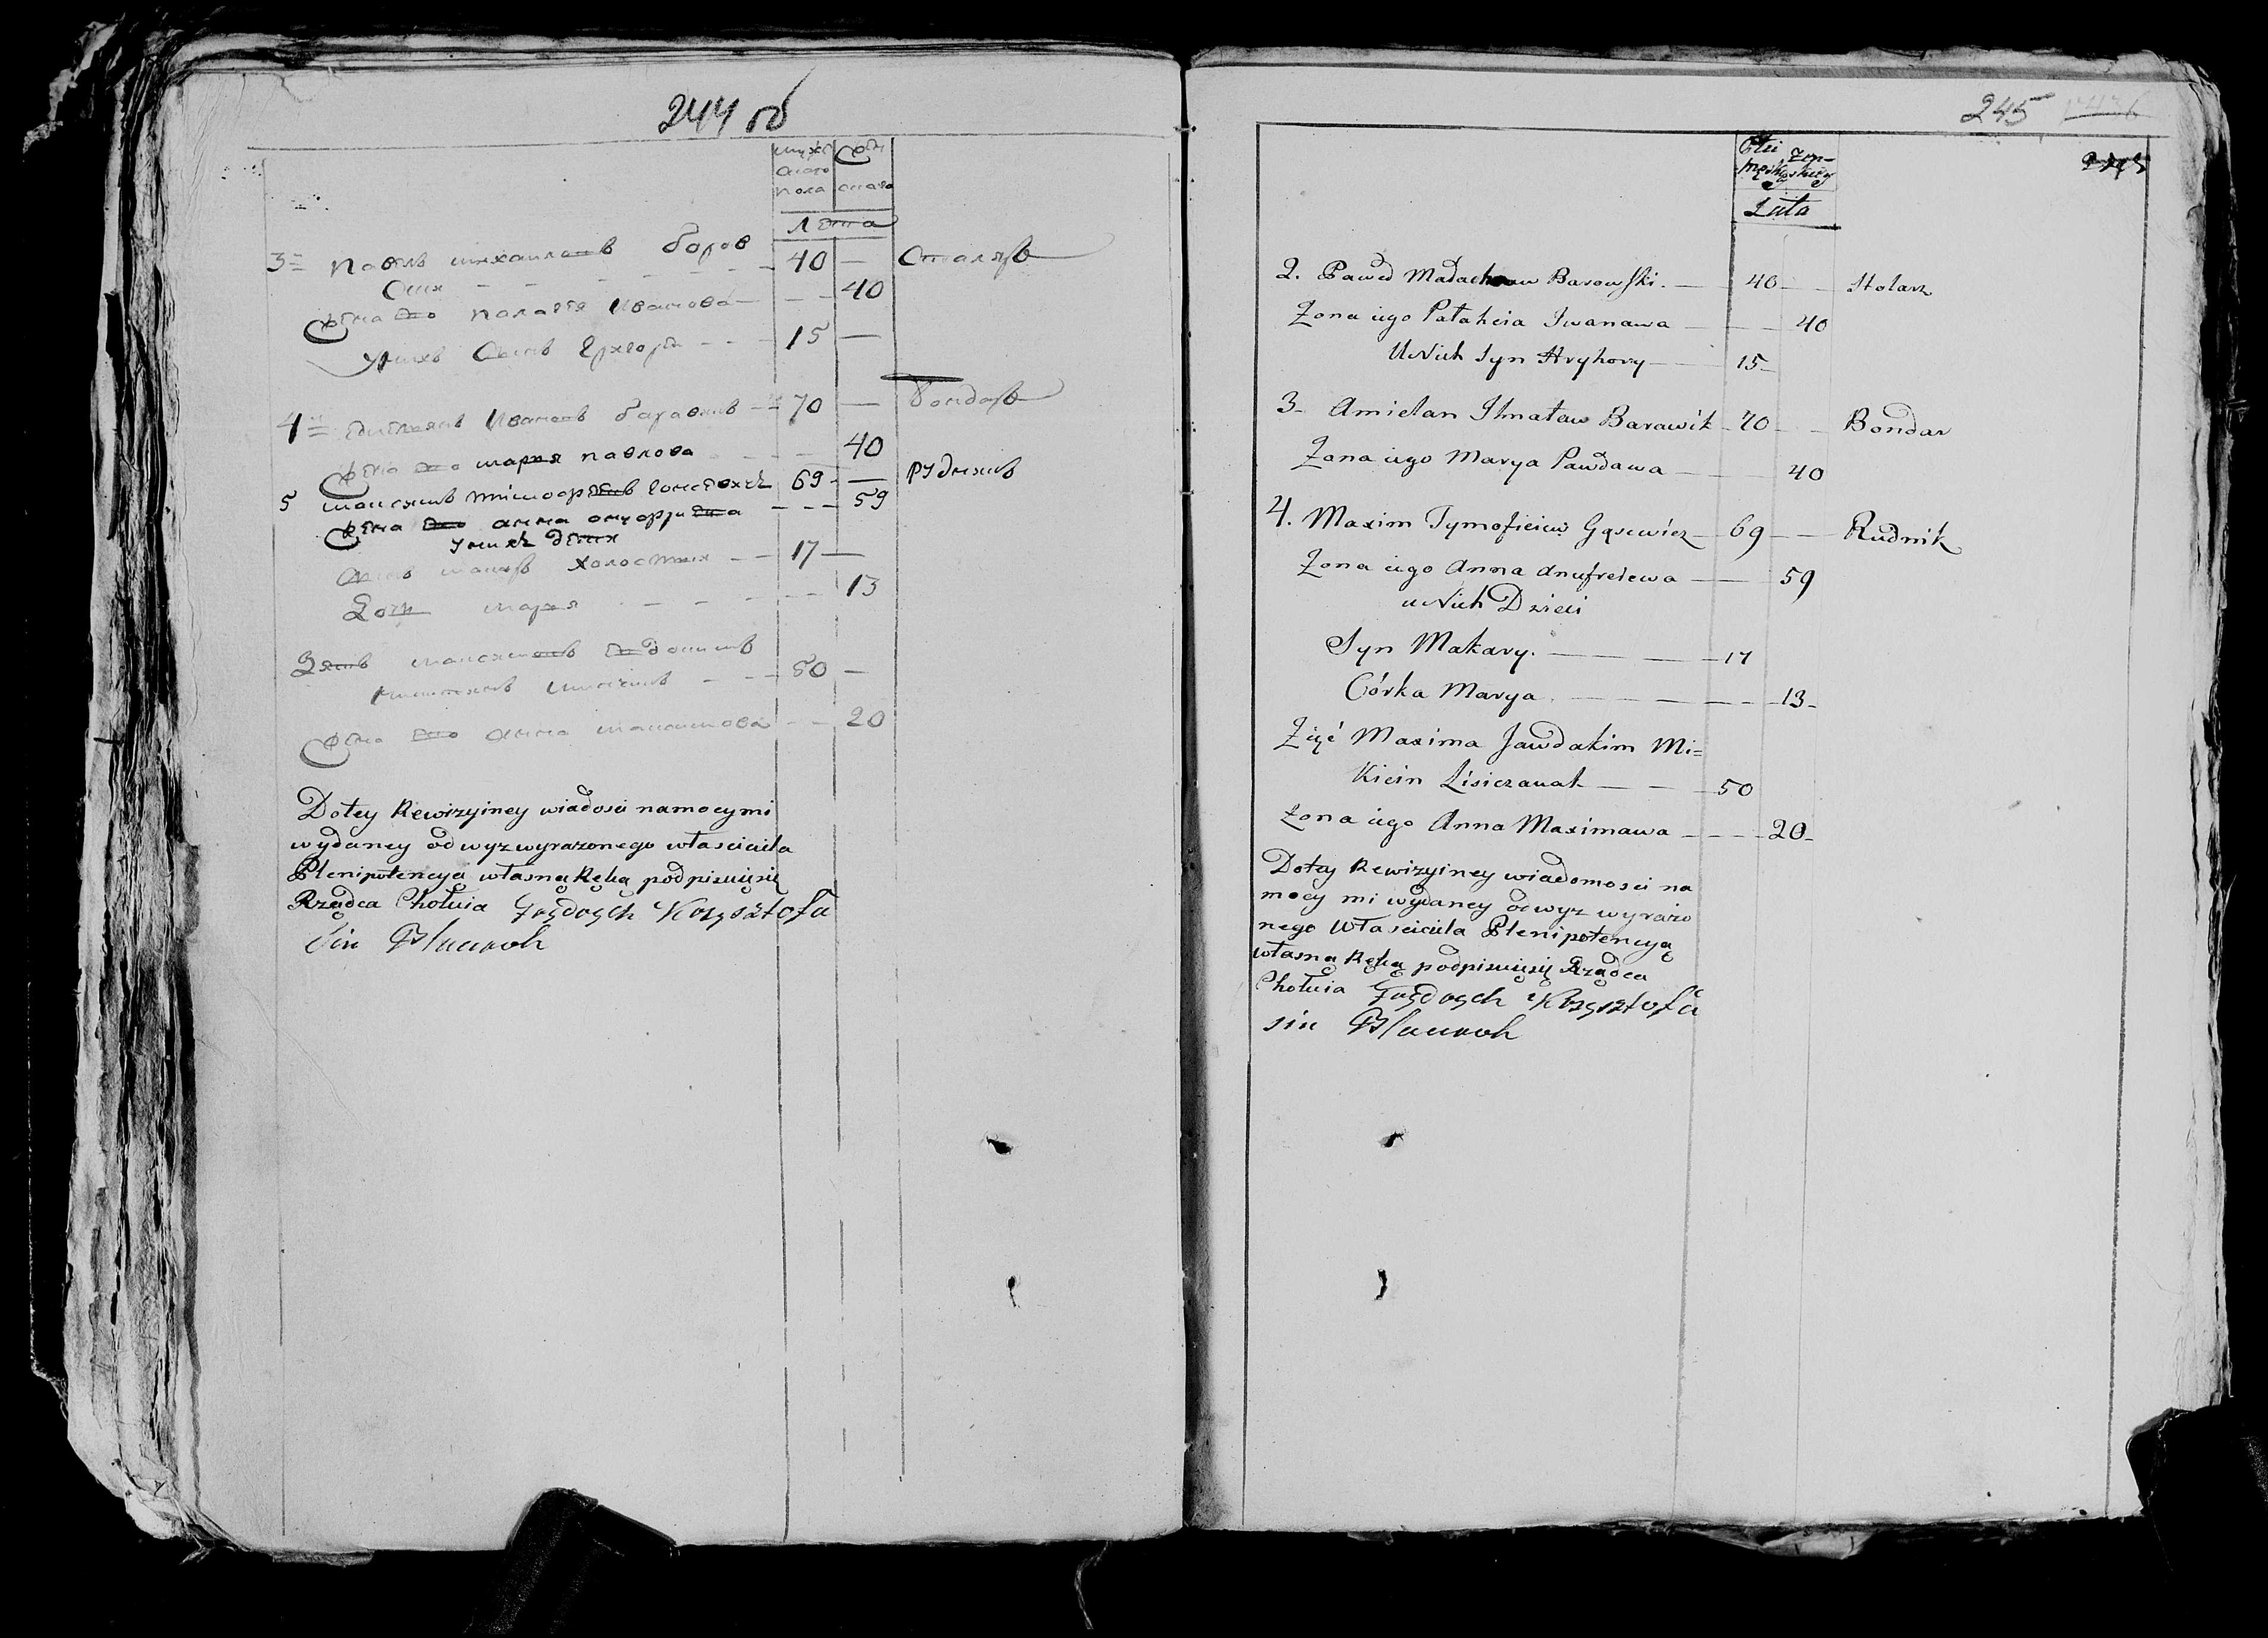 244 об
мужс
каго
пола
Лета
3 Павелъ Михаиловъ Боров
40 — Столяръ
40
жена его Палагея Иванова
у нихъ сынъ Григори 15 —
4 Емельянъ Ивановъ Боравикъ 70 — Бондаръ
жена его Марья Павлова 40
5 Максимъ Тимофеевъ 69 — Рудникъ
жена его Анна Онуфриева 59
у нихъ дети
сынъ Макаръ холостыи 17 —
Дочь Марья 13
Зять Максимовъ Евдокимъ
50 —
жена его Анна Максимова 20
Dotey Rewizyiney wiadosci namocy mi
wydaney od wyz wyrazonego własciciela
Plenipotencyą własną Ręką podpisuięsię
Rządca Chołuia Krzysztofa
Sin
245
Płci
Męskiey Żeńskiey
Lata
2. Paweł Małachow Barowski. — 40 — Stolarz
Żona iego Pałaheia Iwanawa — 40
U Nich Syn Hryhory — 15
3 Amielan Ihnataw Barawik 70 — Bondar
Żona iego Marya Pawława — 40
4. Maxim Tymofieiew Gąsewicz 69 — Rudnik
Żona iego Anna Anufreiewa — 59
u Nich Dzieci
Syn Makary. — 17
Córka Marya. — 13
Zięć Maxima Jawdakim Mi=
kicin Lisiczanak — 50
Żona iego Anna Maximawa — 20
Dotey Rewizyiney wiadomosci na
mocy mi wydaney od wyz wyrażo
nego Własciciela Plenipotencyą
własną Ręką podpisuięsię Rządca
Chołuia Krzysztofa
sin